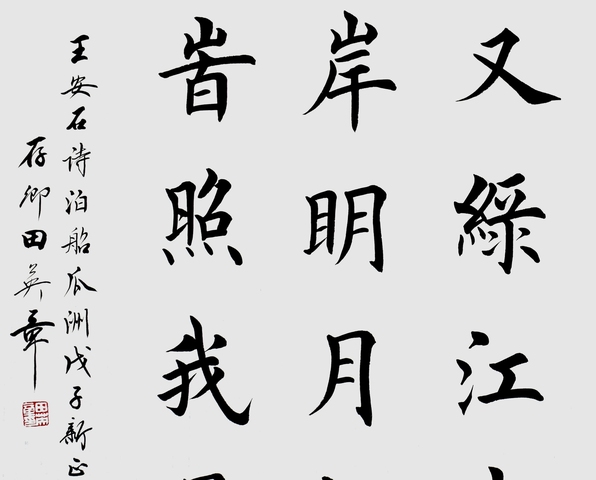 又綠江
岸明月
旹照我
王安石诗泊船瓜洲戊子新正
存卿田英章